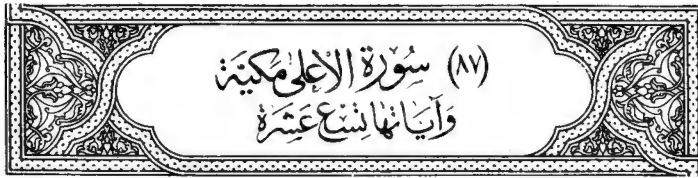 (٨٧) سُورَةُ الأَعْلىٰ مَكِّيَّة
وَآيَاتُهَا تِسْعَ عَشِرَة